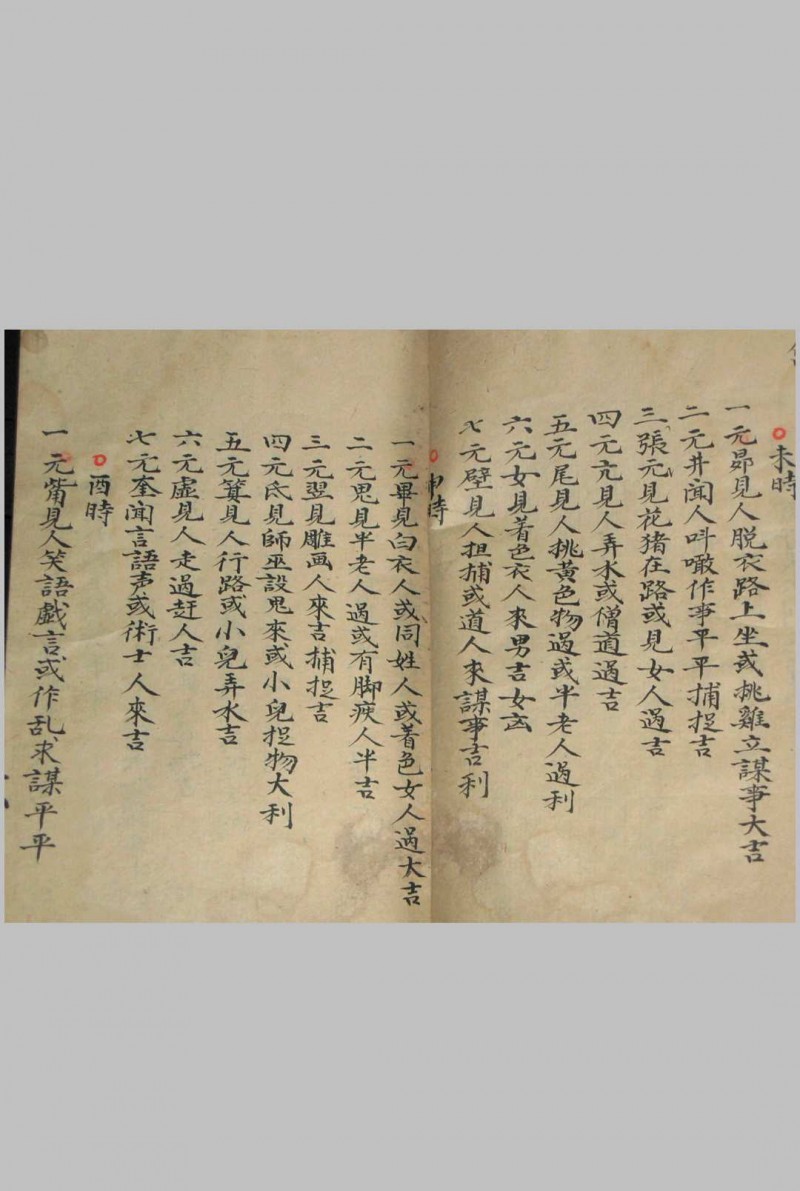 未時
一元昴見人脱衣路上坐或挑雞立謀事大吉
二元井聞人呌噉作事平平捕捉吉
三張元見花猪在路或見女人過吉
四元亢見人弄水或僧道過吉
五元尾見人挑黃色物過或半老人過利
六元女見着色衣人來男吉女凶
七元壁見人担捕或道人來謀事吉利
申時
一元畢見白衣人或同姓人或着色女人過大吉
二元鬼見半老人過或有脚疾人半吉
三元翌見雕画人來吉捕捉吉
四元氐見師巫設鬼來或小兒捉物大利
五元箕見人行路或小兒弄水吉
六元虛見人走過赶人吉
七元奎聞言語声或術士人來吉
酉時
一元觜見人笑語戲言或作乱求謀平平